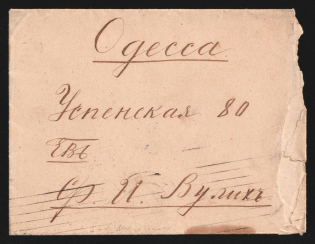 Одесса
Успенская 80
Ф. И. Вуликъ